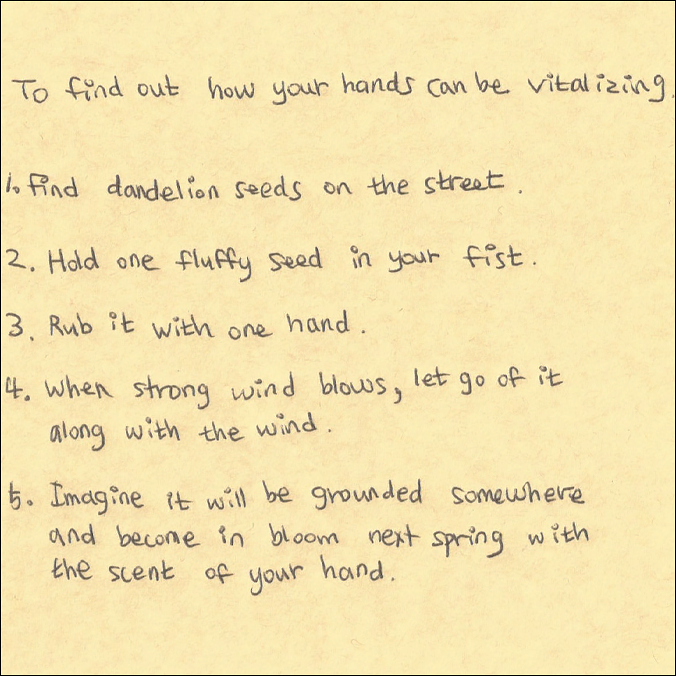 To find out how your hands can be vitalizing.
1. find dandelion seeds on the street.
2. Hold one fluffy seed in your fist.
3. Rub it with one hand.
4. When strong wind blows, let go of it
along with the wind.
5. Imagine it will be grounded somewhere
and become in bloom next spring with
the scent of your hand.